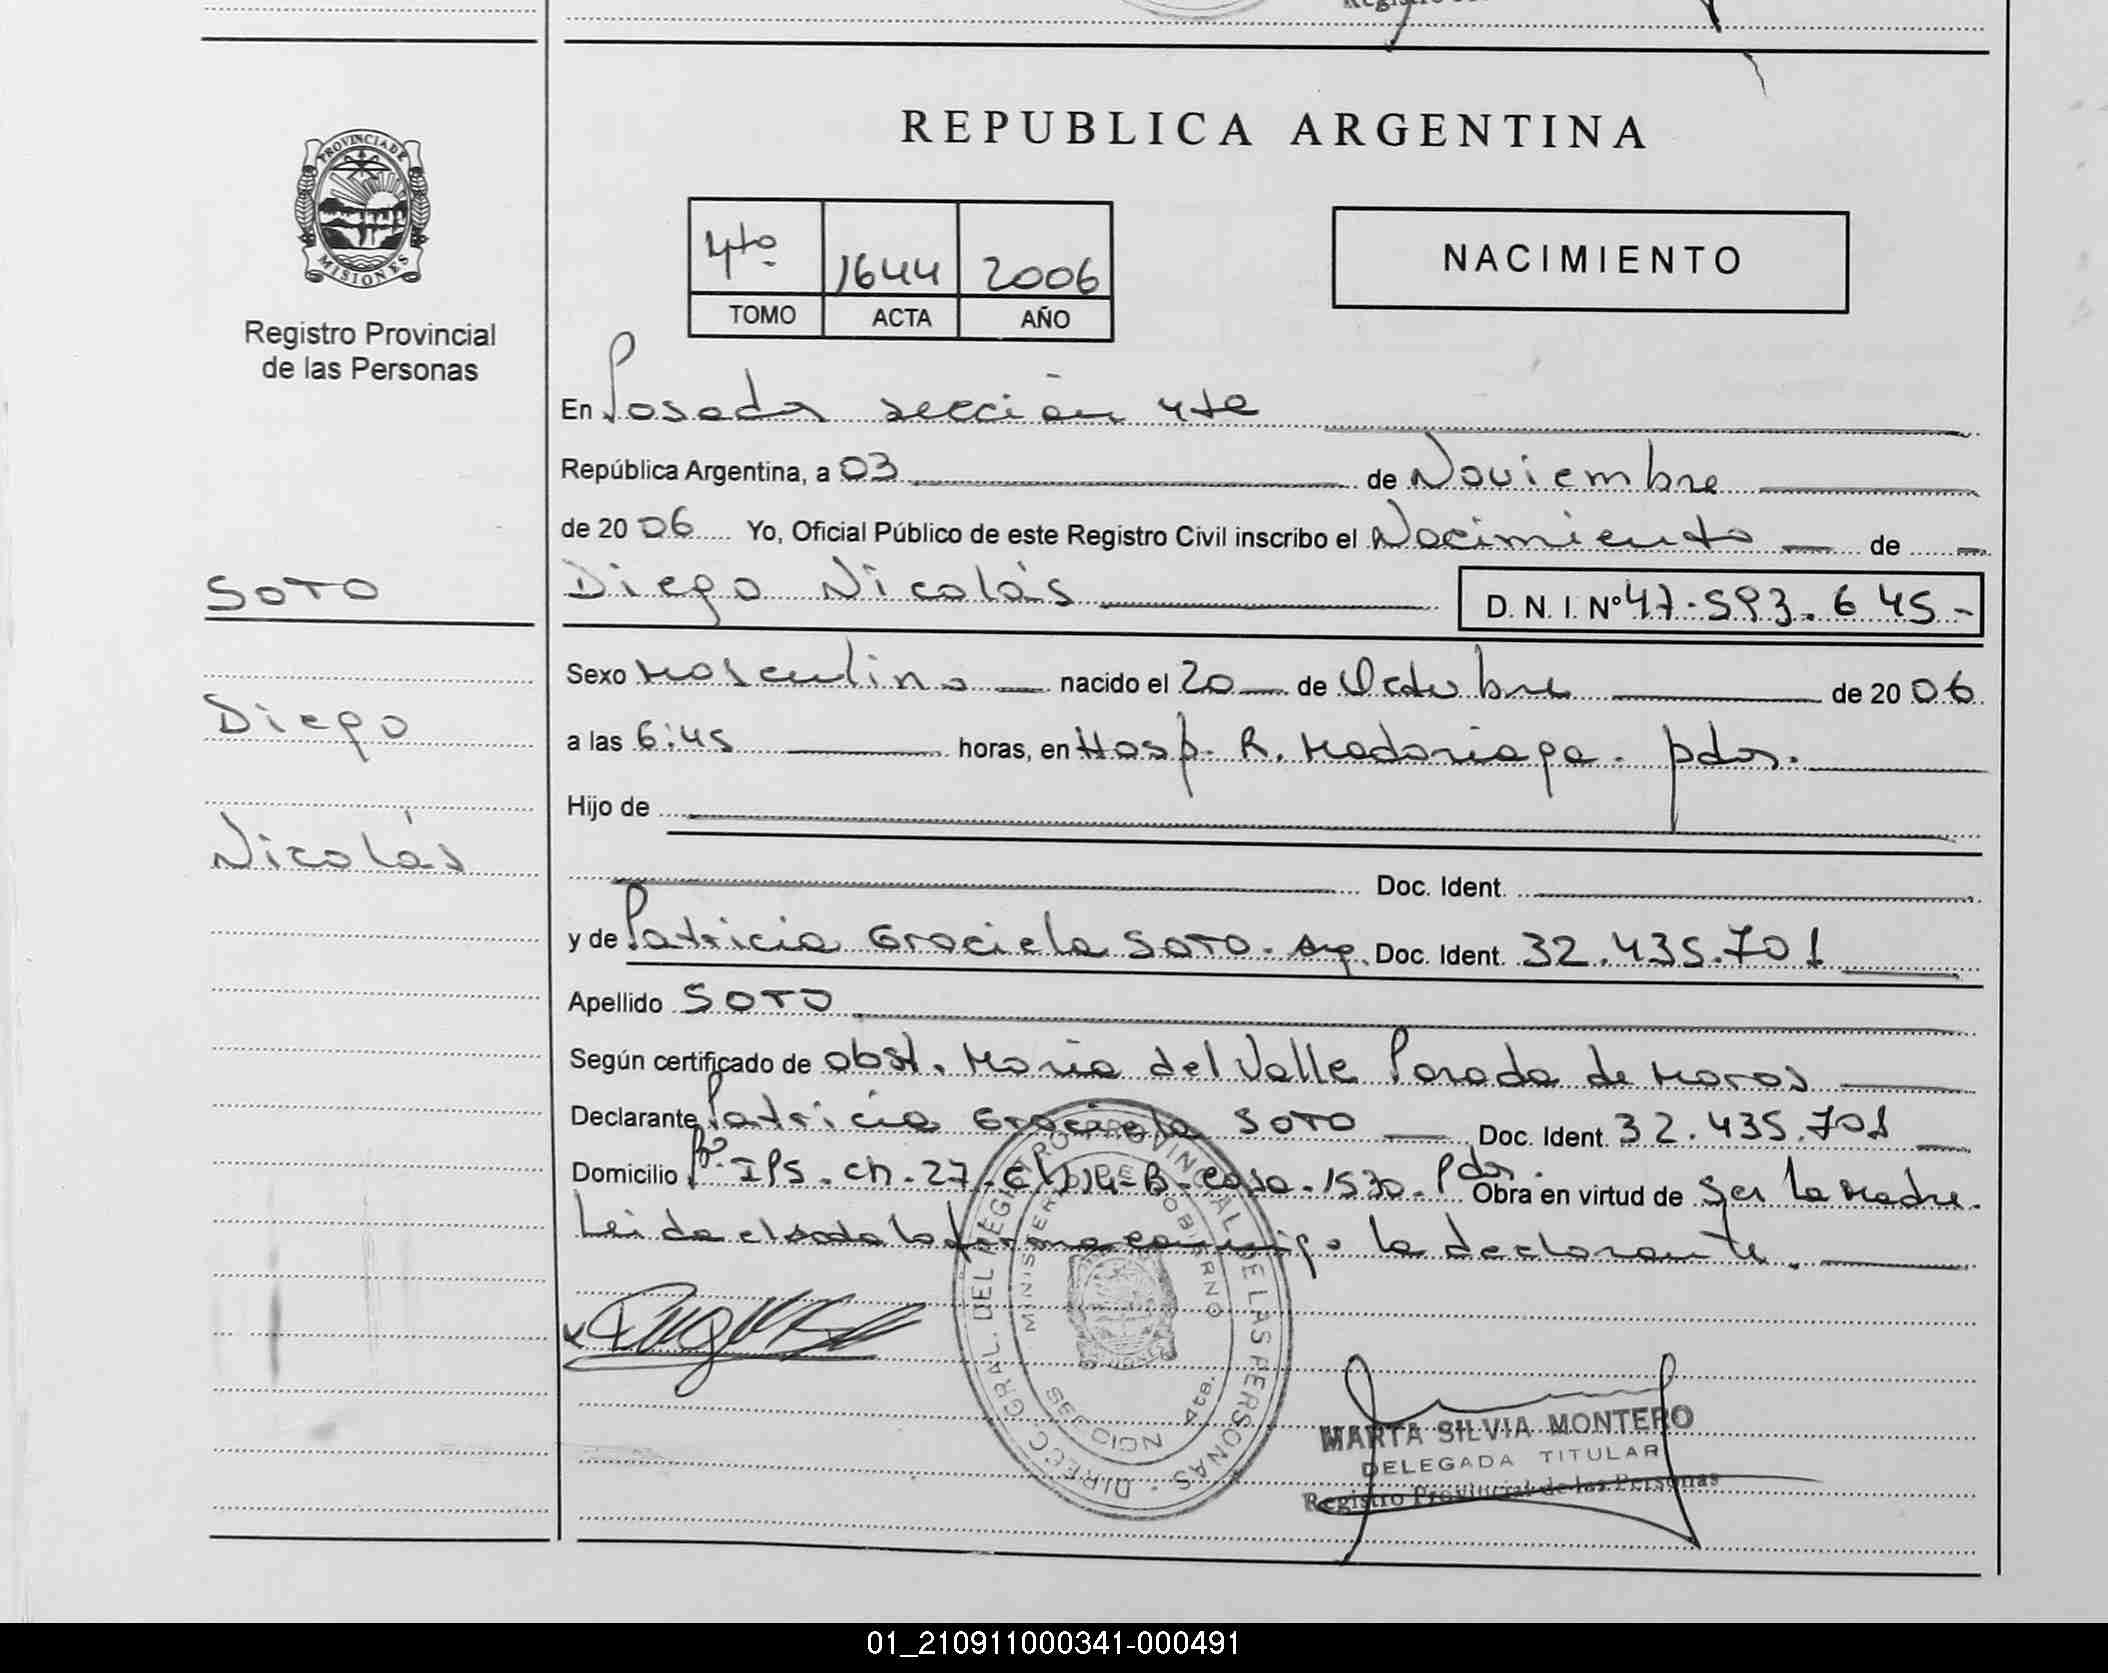 REPUBLICA ARGENTINA
PROVINCIA DE
MISIONES
Registro Provincial
de las Personas
4to 1644 2006
TOMO ACTA AÑO
NACIMIENTO
En Posadas sección 4ta
República Argentina, a 03 de Noviembre
de 20 06 Yo, Oficial Público de este Registro Civil inscribo el Nacimiento de
SOTO
Diego Nicolás D. N. I. Nº 47.593.645.-
Sexo Masculino nacido el 20 de Octubre de 20 06
Diego
a las 6:45 horas, en Hosp. R. Madariaga. pdas.
Hijo de
Nicolás
Doc. Ident.
y de Patricia Graciela SOTO. Arg. Doc. Ident. 32.435.701
Apellido SOTO
Según certificado de obst. Maria del Valle Parada de
Declarante Patricia Graciela SOTO Doc. Ident. 32.435.701
Domicilio Bº. IPS. ch. 27. casa. 1530. Pdas. Obra en virtud de Ser la Madre.
Leida el acta la firma conmigo la declarante.
DIRECC. GRAL. DEL REGISTRO PROVINCIAL DE LAS PERSONAS
MINISTERIO DE GOBIERNO
SECCION 4ta.
MARTA SILVIA MONTERO
DELEGADA TITULAR
Registro Provincial de las Personas
01_210911000341-000491